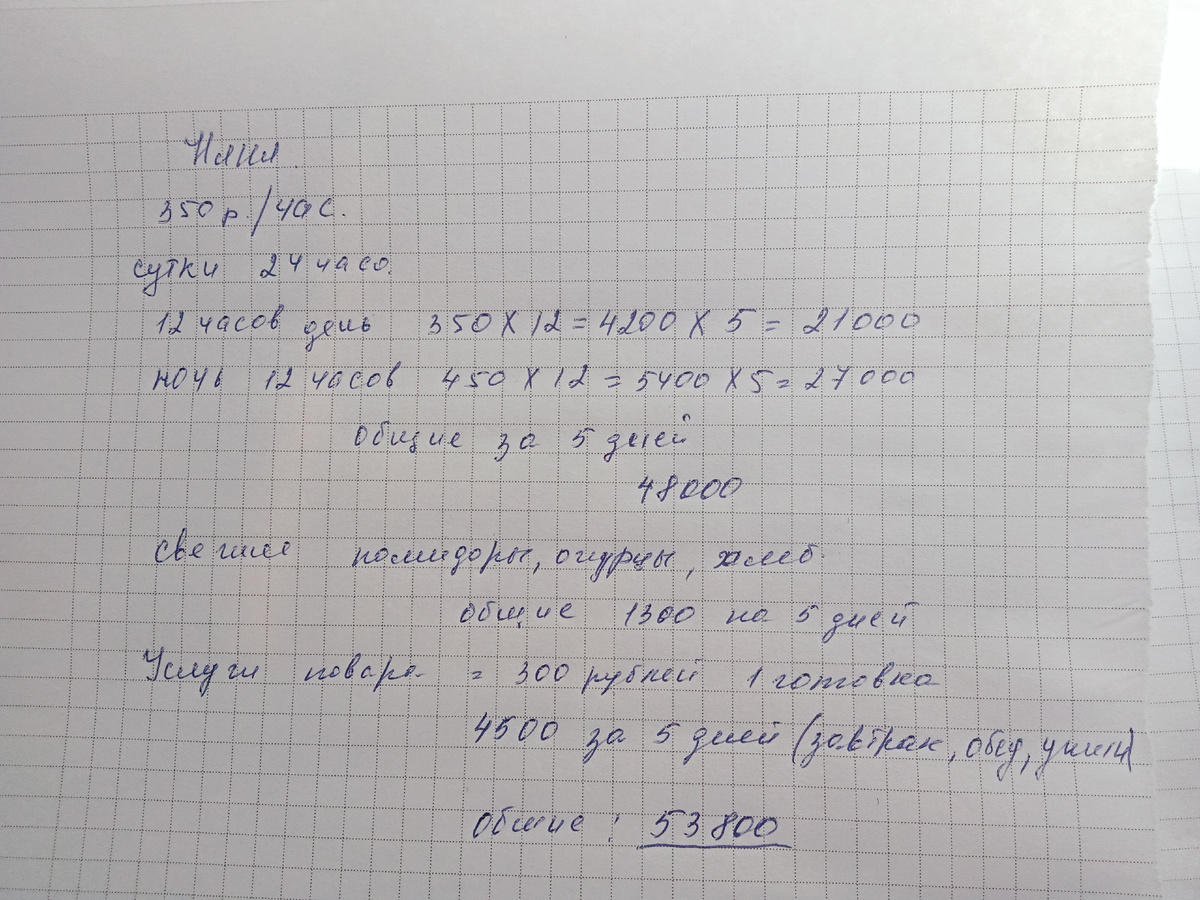 Няня.
350 р./час.
сутки 24 часа.
12 часов день 350 х 12 = 4200 х 5 = 21000
ночь 12 часов 450 х 12 = 5400 х 5 = 27000
Общие за 5 дней
48000
свежие помидоры, огурцы, хлеб
общие 1300 на 5 дней
Услуги повара = 300 рублей 1 готовка
4500 за 5 дней (завтрак, обед, ужин)
Общие : 53800